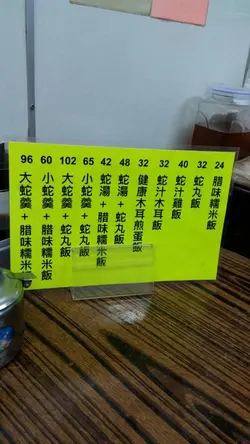 24 腊味糯米飯
32 蛇丸飯
40 蛇汁雞飯
32 蛇汁木耳飯
32 健康木耳煎蛋飯
48 蛇湯+蛇丸飯
42 蛇湯+腊味糯米飯
65 小蛇羹+蛇丸飯
102 大蛇羹+蛇丸飯
60 小蛇羹+腊味糯米飯
96 大蛇羹+腊味糯米飯